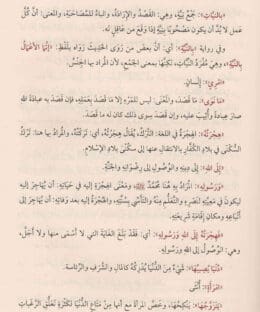 «بِالنِّيَّاتِ»: جَمْعُ نِيَّةٍ، وهي: القَصْدُ والإِرَادَةُ، والبَاءُ لِلْمُصَاحَبَةِ، والمَعْنَى: أَنَّ كُلَّ
عَمَلٍ لا بُدَّ أَنْ يَكُونَ مَصْحُوبًا بِنِيَّةٍ إِذَا وَقَعَ مِن عَاقِلٍ لَه.
وفي رواية «بِالنِّيَّةِ»: أي: أَنَّ بعضَ من رَوَى الحَدِيثَ رَوَاه بلَفْظِ: «إِنَّمَا الأَعْمَالُ
بِالنِّيَّةِ»، وهيَ مُفْرَدُ النِّيَّاتِ، لَكِنَّهَا بمعنى الجَمْعِ، لأن المُرَادَ بها الجِنْسُ.
مَا نَوَى: مَا قَصَدَ، والمَعْنَى: ليس لِلْمَرْءِ إلا مَا قَصَدَ بِعَمَلِهِ، فإن قَصَدَ به عِبَادَةَ اللهِ
صار عِبَادَةً وأُثِيبَ عليه، وإن قَصَدَ سِوَى ذلك لم يكن له إلا مَا قَصَدَ.
«هِجْرَتُهُ»: الهِجْرَةُ في اللغة: التَّرْكُ، يُقَالُ: هِجْرَتِي، أي: تَرَكْتُهُ، والمُرَادُ بها هنا: تَرْكُ
السُّكْنَى في بلادِ الكُفَّارِ بالانتقالِ عنها إلى السُّكْنَى في بلادِ الإسلام.
«إِلَى اللهِ»: إلى دِينِهِ والوُصُولِ إلى رِضْوَانِهِ والجَنَّةِ.
«وَرَسُولِهِ»: المُرَادُ به هنا مُحَمَّدٌ ﷺ ومَعْنَى الهِجْرَةِ إليه في حَيَاتِهِ: أن يُهَاجِرَ إليه
لِيَكُونَ في والتَّعَلُّمِ مِنْهُ والتَّأَسِّي بِسُنَّتِهِ، والهِجْرَةُ إليه بعد وَفَاتِهِ: أن يُهَاجِرَ إلى
أَتْبَاعِهِ ومكانِ إقامَةِ شَرِيعَتِهِ.
«فَهِجْرَتُهُ إِلَى اللهِ وَرَسُولِهِ»: أي: فقد بَلَغَ الغَايَةَ التي لا أَسْمَى منها ولا أَجَلَّ،
وهي: الوُصُولُ إلى اللهِ ورَسُولِهِ.
«لِدُنْيَا يُصِيبُهَا»: شَيْءٌ مِنَ الدُّنْيَا يُدْرِكُهُ كالمَالِ والشَّرَفِ والرِّئَاسَةِ.
«امْرَأَةٍ»: أُنْثَى
«يَتَزَوَّجُهَا»: يَنْكِحُهَا، وخَصَّ المَرْأَةَ مع أنها مِنْ مَتَاعِ الدُّنْيَا لِكَثْرَةِ تَعَلُّقِ الرَّغَبَاتِ